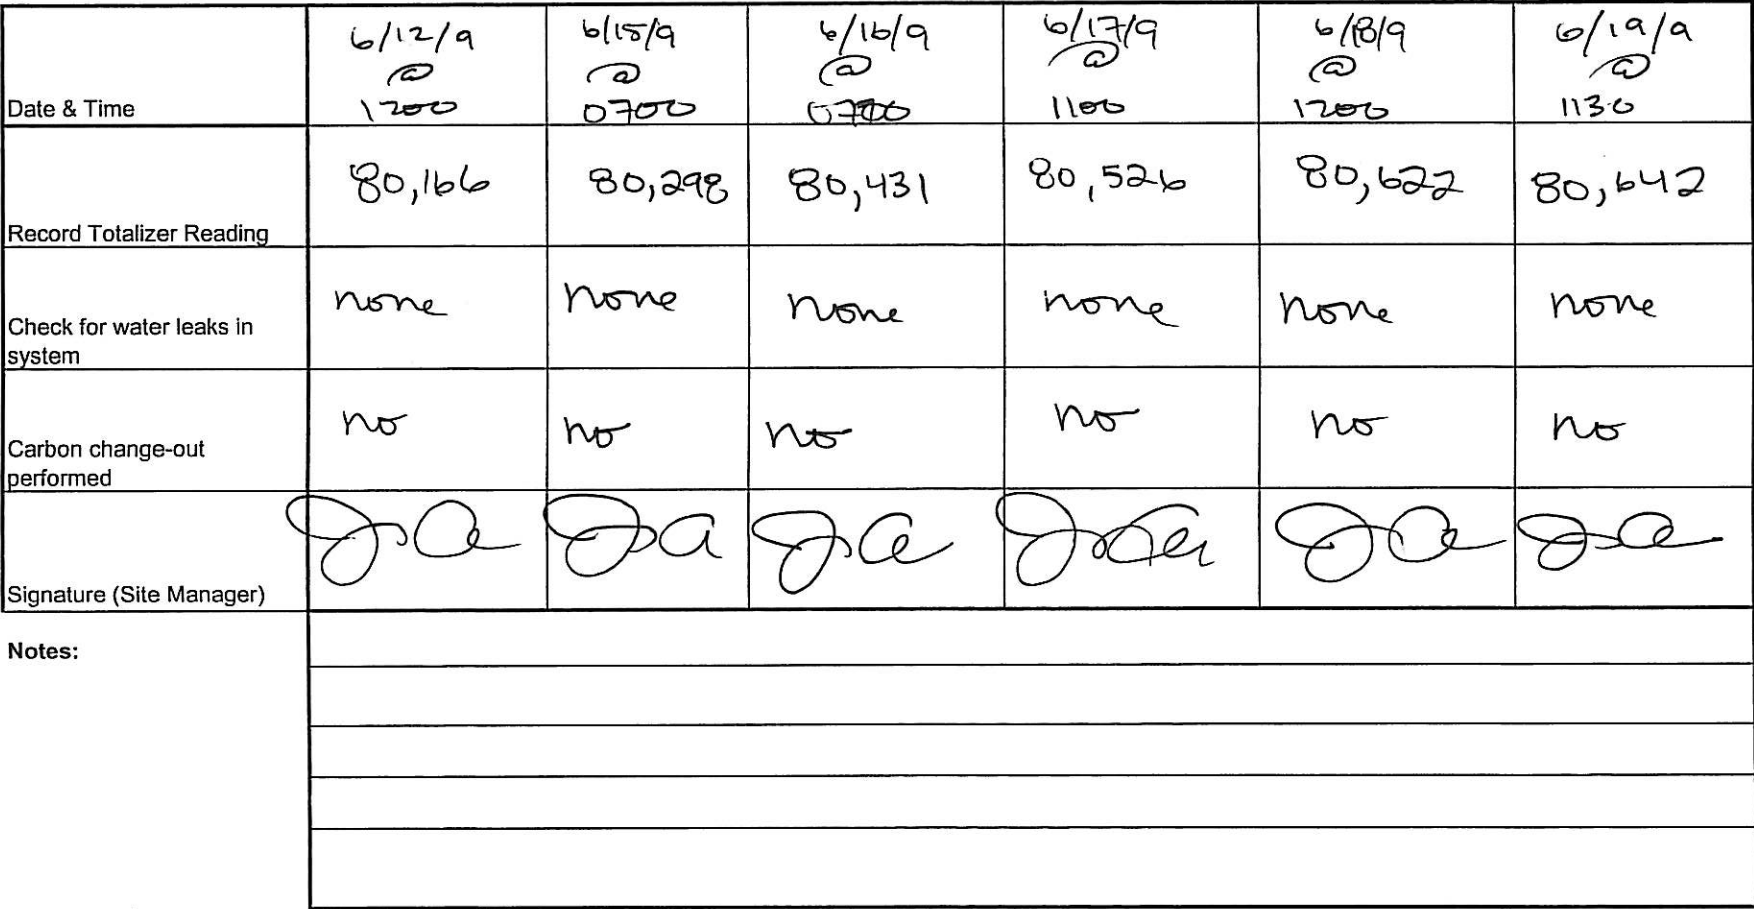 Date & Time
6/12/9
@
1200
6/15/9
@
0700
6/16/9
@
0700
6/17/9
@
1100
6/18/9
@
1200
6/19/9
@
1130
Record Totalizer Reading
80,166
80,298
80,431
80,526
80,622
80,642
Check for water leaks in
system
none
none
none
none
none
none
Carbon change-out
performed
no
no
no
no
no
no
Signature (Site Manager)
Notes: